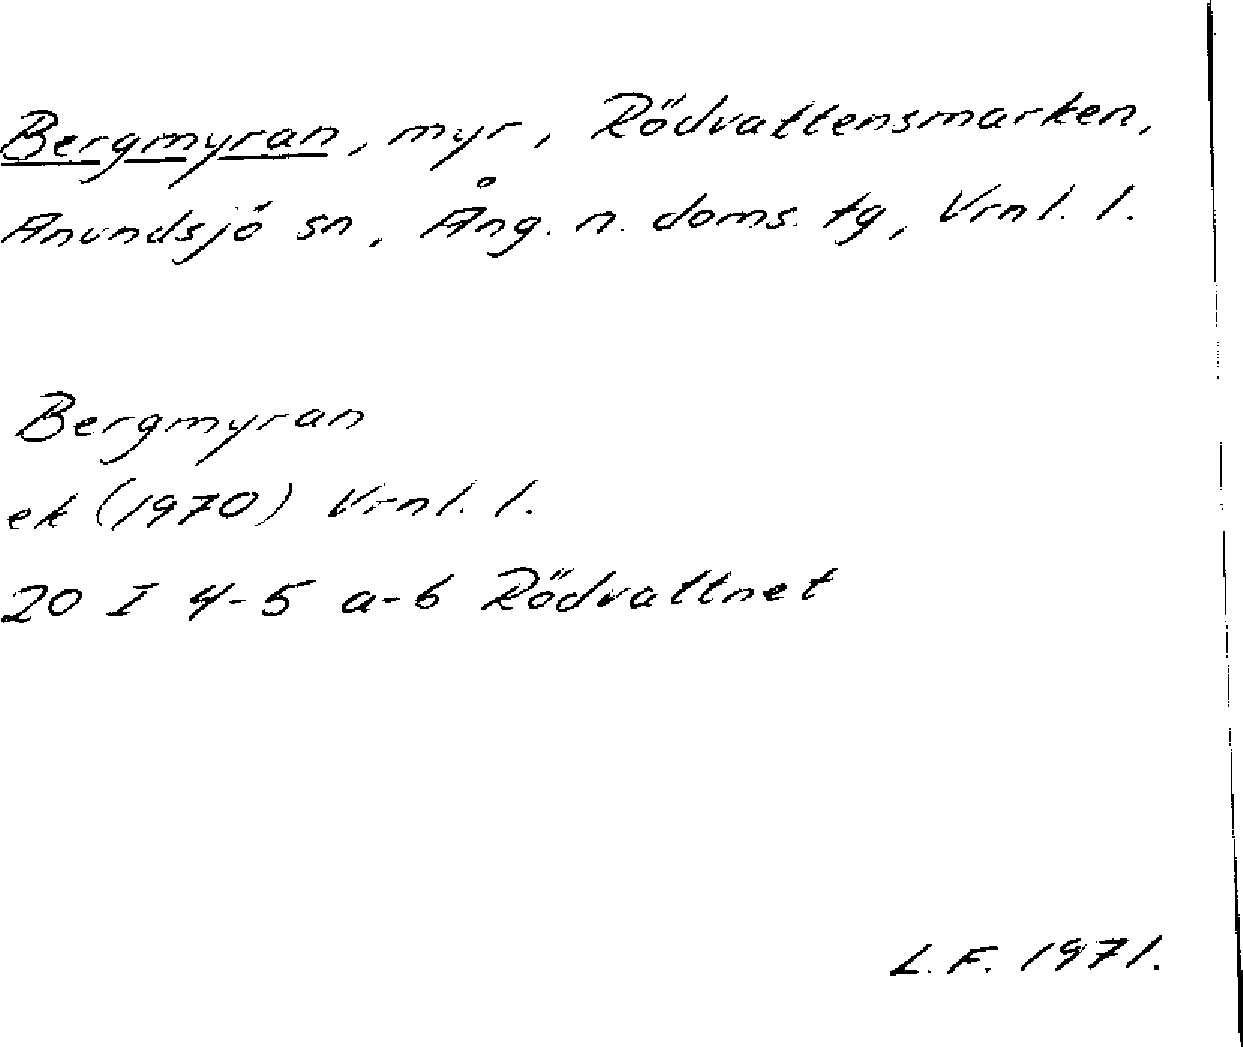 Bergmyran, myr, Rödvattensmarken,
Anundsjö sn, Ång. n. doms. tg, Vrnl. l.
Bergmyran
ek (1970) Vrnl. l.
20 I 4-5 a-b Rödvattnet
L. F. 1971.